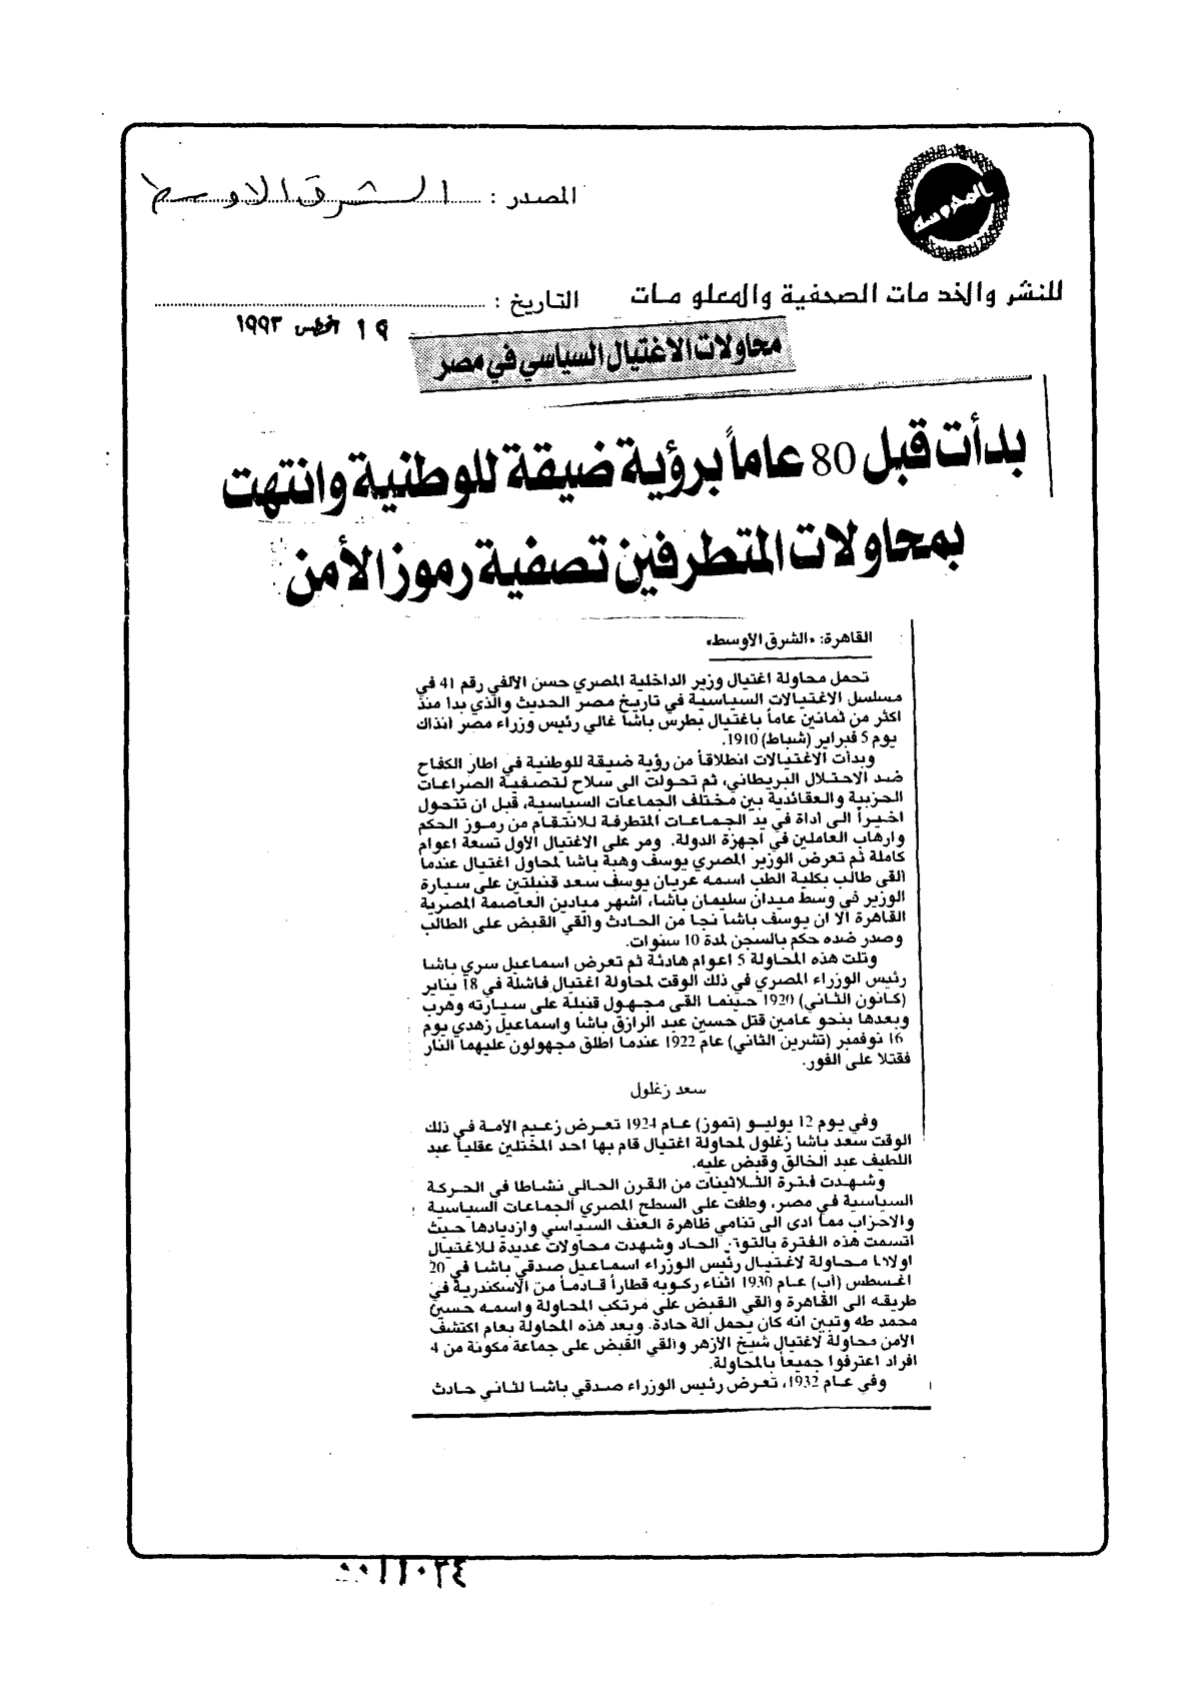 المحروسة
المصدر : الشرق الاوسط
للنشر والخدمات الصحفية والمعلومات
التاريخ :
١٩ اغسطس ١٩٩٣
محاولات الاغتيال السياسي في مصر
بدأت قبل 80 عاماً برؤية ضيقة للوطنية وانتهت
بمحاولات المتطرفين تصفية رموز الأمن
القاهرة: «الشرق الاوسط»
تحمل محاولة اغتيال وزير الداخلية المصري حسن الألفي رقم 41 في
مسلسل الاغتيالات السياسية في تاريخ مصر الحديث والذي بدا منذ
اكثر من ثمانين عاماً باغتيال بطرس باشا غالي رئيس وزراء مصر انذاك
يوم 5 فبراير (شباط) 1910.
وبدأت الاغتيالات انطلاقاً من رؤية ضيقة للوطنية في اطار الكفاح
ضد الاحتلال البريطاني، ثم تحولت الى سلاح لتصفية الصراعات
الحزبية والعقائدية بين مختلف الجماعات السياسية، قبل ان تتحول
اخيراً الى اداة في يد الجماعات المتطرفة للانتقام من رموز الحكم
وارهاب العاملين في اجهزة الدولة. ومر على الاغتيال الأول تسعة اعوام
كاملة ثم تعرض الوزير المصري يوسف وهبة باشا لمحاول اغتيال عندما
القى طالب بكلية الطب اسمه عريان يوسف سعد قنبلتين على سيارة
الوزير في وسط ميدان سليمان باشا، اشهر ميادين العاصمة المصرية
القاهرة الا ان يوسف باشا نجا من الحادث والقي القبض على الطالب
وصدر ضده حكم بالسجن لمدة 10 سنوات.
وتلت هذه المحاولة 5 اعوام هادئة ثم تعرض اسماعيل سري باشا
رئيس الوزراء المصري في ذلك الوقت لمحاولة اغتيال فاشلة في 18 يناير
(كانون الثاني) 1920 حينما القى مجهول قنبلة على سيارته وهرب
وبعدها بنحو عامين قتل حسين عبد الرازق باشا واسماعيل زهدي يوم
16 نوفمبر (تشرين الثاني) عام 1922 عندما اطلق مجهولون عليهما النار
فقتلا على الفور.
سعد زغلول
وفي يوم 12 يوليو (تموز) عام 1924 تعرض زعيم الأمة في ذلك
الوقت سعد باشا زغلول لمحاولة اغتيال قام بها احد المختلين عقلياً عبد
اللطيف عبد الخالق وقبض عليه.
وشهدت فترة الثلاثينات من القرن الحالي نشاطا في الحركة
السياسية في مصر، وطفت على السطح المصري الجماعات السياسية
والاحزاب مما ادى الى تنامي ظاهرة العنف السياسي وازديادها حيث
اتسمت هذه الفترة بالتوتر الحاد وشهدت محاولات عديدة للاغتيال
اولاها محاولة لاغتيال رئيس الوزراء اسماعيل صدقي باشا في 20
اغسطس (آب) عام 1930 اثناء ركوبه قطاراً قادماً من الاسكندرية في
طريقه الى القاهرة والقي القبض على مرتكب المحاولة واسمه حسين
محمد طه وتبين انه كان يحمل آلة حادة. وبعد هذه المحاولة بعام اكتشف
الأمن محاولة لاغتيال شيخ الأزهر والقي القبض على جماعة مكونة من 4
افراد اعترفوا جميعاً بالمحاولة.
وفي عام 1932، تعرض رئيس الوزراء صدقي باشا لثاني حادث